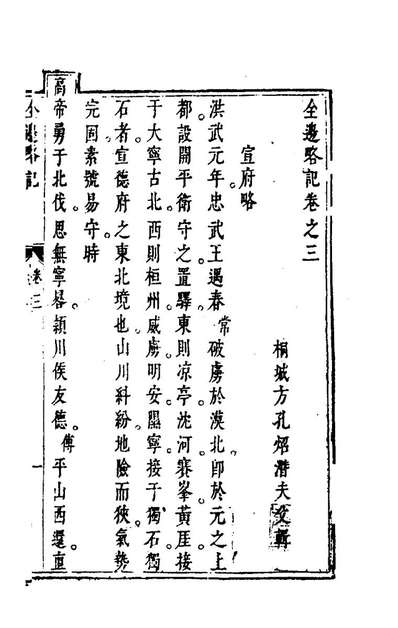 全邊略記卷之三
桐城方孔炤潛夫父輯
宣府略
洪武元年忠武王遇春常破虜於漠北卽於元之上
都設開平衛守之置驛東則涼亭沈河賽峯黃厓接
于大寧古北西則桓州威虜明安隰寧接于獨石獨
石者宣德府之東北境也山川糾紛地險而狹氣勢
完固素號易守時
高帝勇于北伐思無寧晷潁川侯友德傅平山西還直
全邊略記
卷三
一